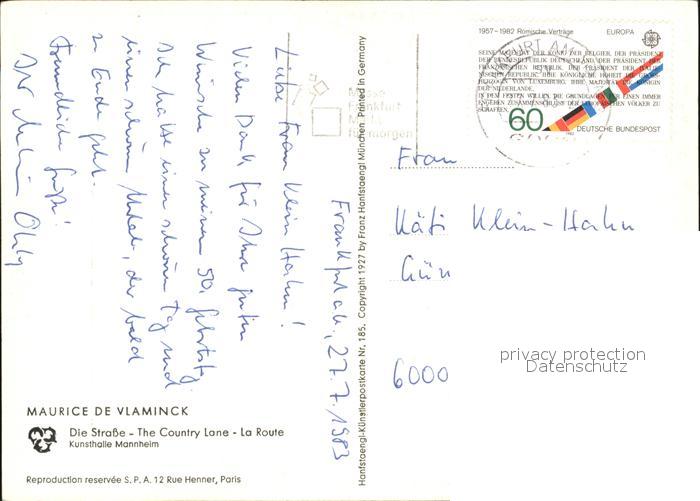 Frankfurt, 27.7.1983
Liebe Frau Klein-Hahn!
Vielen Dank für Ihre guten
Wünsche zu meinem 50. Geburtstag.
Ich hatte einen schönen Tag und
einen schönen Urlaub, der bald
zu Ende geht.
Freundliche Grüße!
Ihr
MAURICE DE VLAMINCK
Die Straße - The Country Lane - La Route
Kunsthalle Mannheim
Reproduction reservée S. P. A. 12 Rue Henner, Paris
Hanfstaengl-Künstlerpostkarte Nr. 185. Copyright 1927 by Franz Hanfstaengl München. Printed in Germany
Frankfurt
für morgen
1957-1982 Römische Verträge EUROPA
SEINE MAJESTÄT DER KÖNIG DER BELGIER, DER PRÄSIDENT
DER BUNDESREPUBLIK DEUTSCHLAND, DER PRÄSIDENT DER
FRANZÖSISCHEN REPUBLIK, DER PRÄSIDENT DER ITALIE-
NISCHEN REPUBLIK, IHRE KÖNIGLICHE HOHEIT DIE GROSS-
HERZOGIN VON LUXEMBURG, IHRE MAJESTÄT DIE KÖNIGIN
DER NIEDERLANDE,
IN DEM FESTEN WILLEN, DIE GRUNDLAGEN FÜR EINEN IMMER
ENGEREN ZUSAMMENSCHLUSS DER EUROPÄISCHEN VÖLKER ZU
SCHAFFEN,
60
DEUTSCHE BUNDESPOST
Frau
Käti Klein-Hahn
6000
privacy protection
Datenschutz